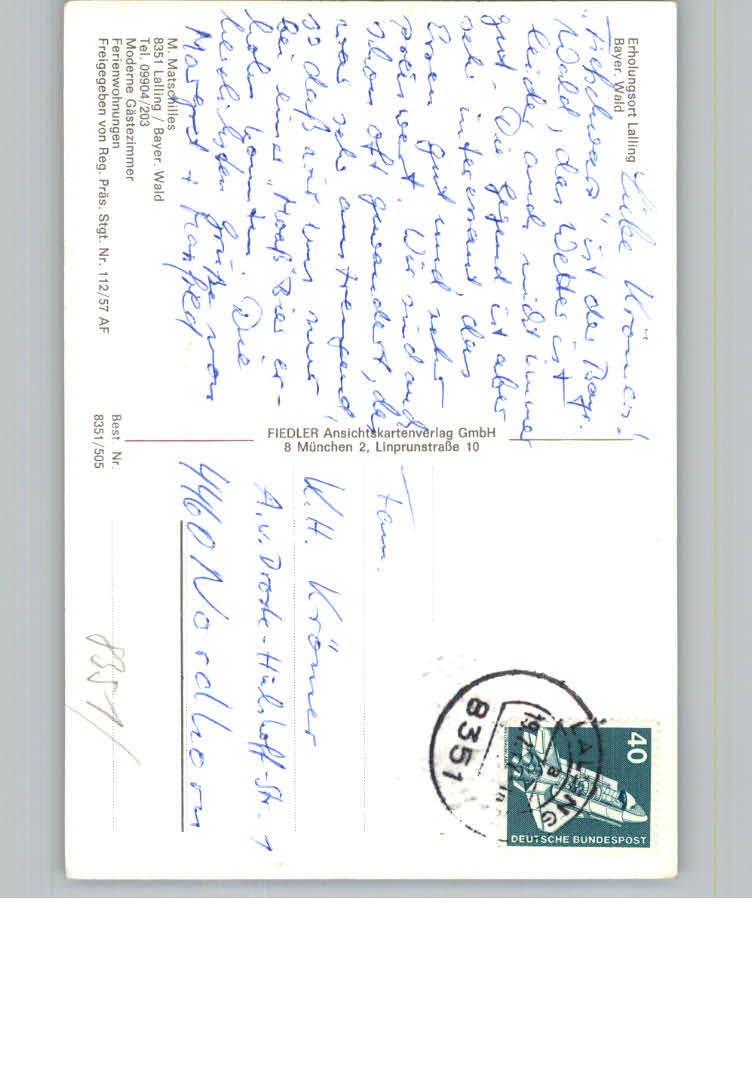 Erholungsort Lalling
Bayer. Wald
Liebe Krömers!
"Tiefschwarz" ist der Bayr.
Wald, das Wetter ist
leider auch nicht immer
gut. Die Gegend ist aber
sehr interessant, das
Essen gut und sehr
preiswert. Wir sind auch
schon oft gewandert, das
war sehr anstrengend,
so daß wir uns nur
bei einer "Maaß" Bier er-
holen konnten. Die
herzlichsten Grüße von
Margret + Manfred
M. Matschilles
8351 Lalling / Bayer. Wald
Tel. 09904/203
Moderne Gästezimmer
Ferienwohnungen
Freigegeben von Reg. Präs. Stgt. Nr. 112/57 AF
FIEDLER Ansichtskartenverlag GmbH
8 München 2, Linprunstraße 10
Best. Nr.
8351/505
Fam.
K.H. Krömer
A. v. Droste-Hülshoff-Str. 1
4460 Nordhorn
8351/
LALLING
8351
40
DEUTSCHE BUNDESPOST